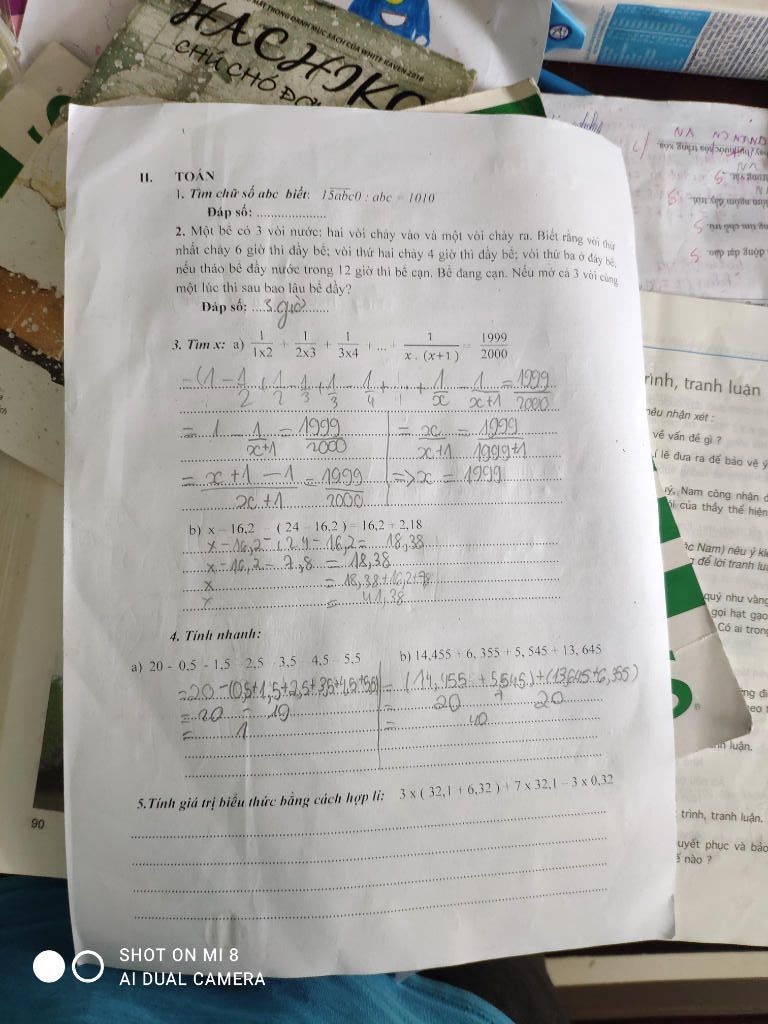 HACHIKO
CHÚ CHÓ ĐỢ
MẮT TRONG DANH MỤC SÁCH CỦA WHITE RAVEN 2016
II. TOÁN
1. Tìm chữ số abc biết: 15abc0 : abc = 1010
Đáp số: ....................
2. Một bể có 3 vòi nước: hai vòi chảy vào và một vòi chảy ra. Biết rằng vòi thứ
nhất chảy 6 giờ thì đầy bể; vòi thứ hai chảy 4 giờ thì đầy bể; vòi thứ ba ở đáy bể,
nếu tháo bể đầy nước trong 12 giờ thì bể cạn. Bể đang cạn. Nếu mở cả 3 vòi cùng
một lúc thì sau bao lâu bể đầy?
Đáp số: ....3 giờ.......
3. Tìm x: a) 1/1x2 + 1/2x3 + 1/3x4 + ... + 1/x . (x+1) = 1999/2000
= (1 - 1/2 + 1/2 - 1/3 + 1/3 - 1/4 + ... + 1/x - 1/x+1 = 1999/2000
= 1 - 1/x+1 = 1999/2000
= x+1-1/x+1 = 1999/2000
= x/x+1 = 1999/1999+1
=> x = 1999
b) x - 16,2 - ( 24 - 16,2 ) = 16,2 + 2,18
x - 16,2 - (24 - 16,2 = 18,38
x - 16,2 - 7,8 = 18,38
x = 18,38+16,2+7,8
x = 41,38
4. Tính nhanh:
a) 20 - 0,5 - 1,5 - 2,5 - 3,5 - 4,5 - 5,5
= 20 - (0,5+1,5+2,5+3,5+4,5+5,5)
= 20 - 19
= 1
b) 14,455 + 6, 355 + 5, 545 + 13, 645
= (14,455 + 5,545) + (13,645+6,355)
= 20 + 20
= 40
5.Tính giá trị biểu thức bằng cách hợp lí: 3 x ( 32,1 + 6,32 ) + 7 x 32,1 - 3 x 0,32
90
rình, tranh luận
nêu nhận xét :
về vấn đề gì ?
í lẽ đưa ra để bảo vệ ý
Nam công nhận
của thầy thể hiện
Nam) nêu ý ki
để lời tranh luậ
quý như vàng
gọi hạt gạo
Có ai trong
luận.
trình, tranh luận.
uyết phục và bảo
nào ?
SHOT ON MI 8
AI DUAL CAMERA